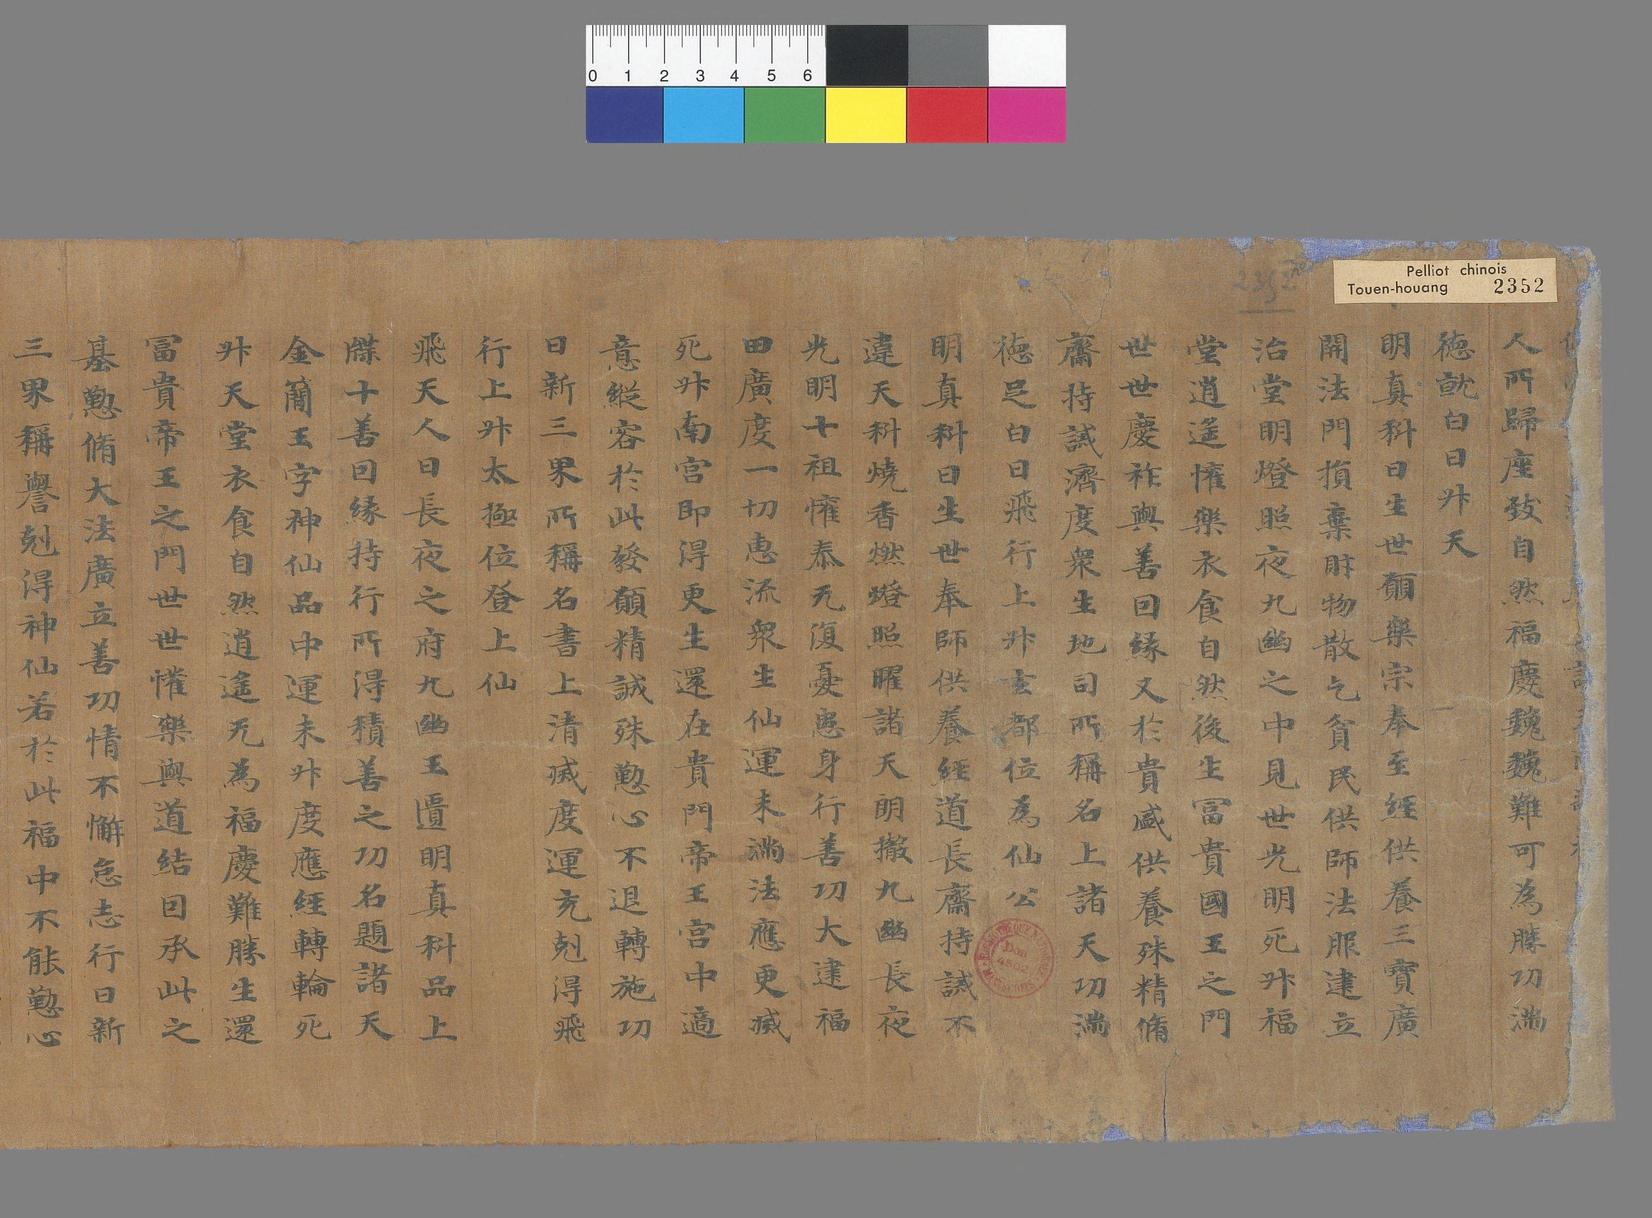 0 1 2 3 4 5 6
Pelliot chinois
Touen-houang 2352
人所歸座致自然福慶巍巍難可為勝功滿
德就白日升天
明真科曰生世願樂宗奉至經供養三寶廣
開法門損棄財物散乞貧民供師法服建立
治堂明燈照夜九幽之中見世光明死升福
堂逍遙懽樂衣食自然後生冨貴國王之門
世世慶祚與善因緣又於貴盛供養殊精脩
齋持誡濟度衆生地司所稱名上諸天功滿
德足白日飛行上升玄都位為仙公
明真科曰生世奉師供養經道長齋持誡不
違天科燒香燃燈照曜諸天朗撤九幽長夜
光明七祖懽泰无復憂患身行善功大建福
田廣度一切惠流衆生仙運未滿法應更滅
死升南宮即得更生還在貴門帝王宮中適
意縱容於此發願精誠殊懃心不退轉施功
日新三界所稱名書上清滅度運充剋得飛
行上升太極位登上仙
飛天人曰長夜之府九幽玉匱明真科品上
牒十善因緣持行所得積善之功名題諸天
金簡玉字神仙品中運未升度應經轉輪死
升天堂衣食自然逍遙无為福慶難勝生還
冨貴帝王之門世世懽樂與道結因承此之
基懃脩大法廣立善功情不懈怠志行日新
三界稱譽剋得神仙若於此福中不能懃心